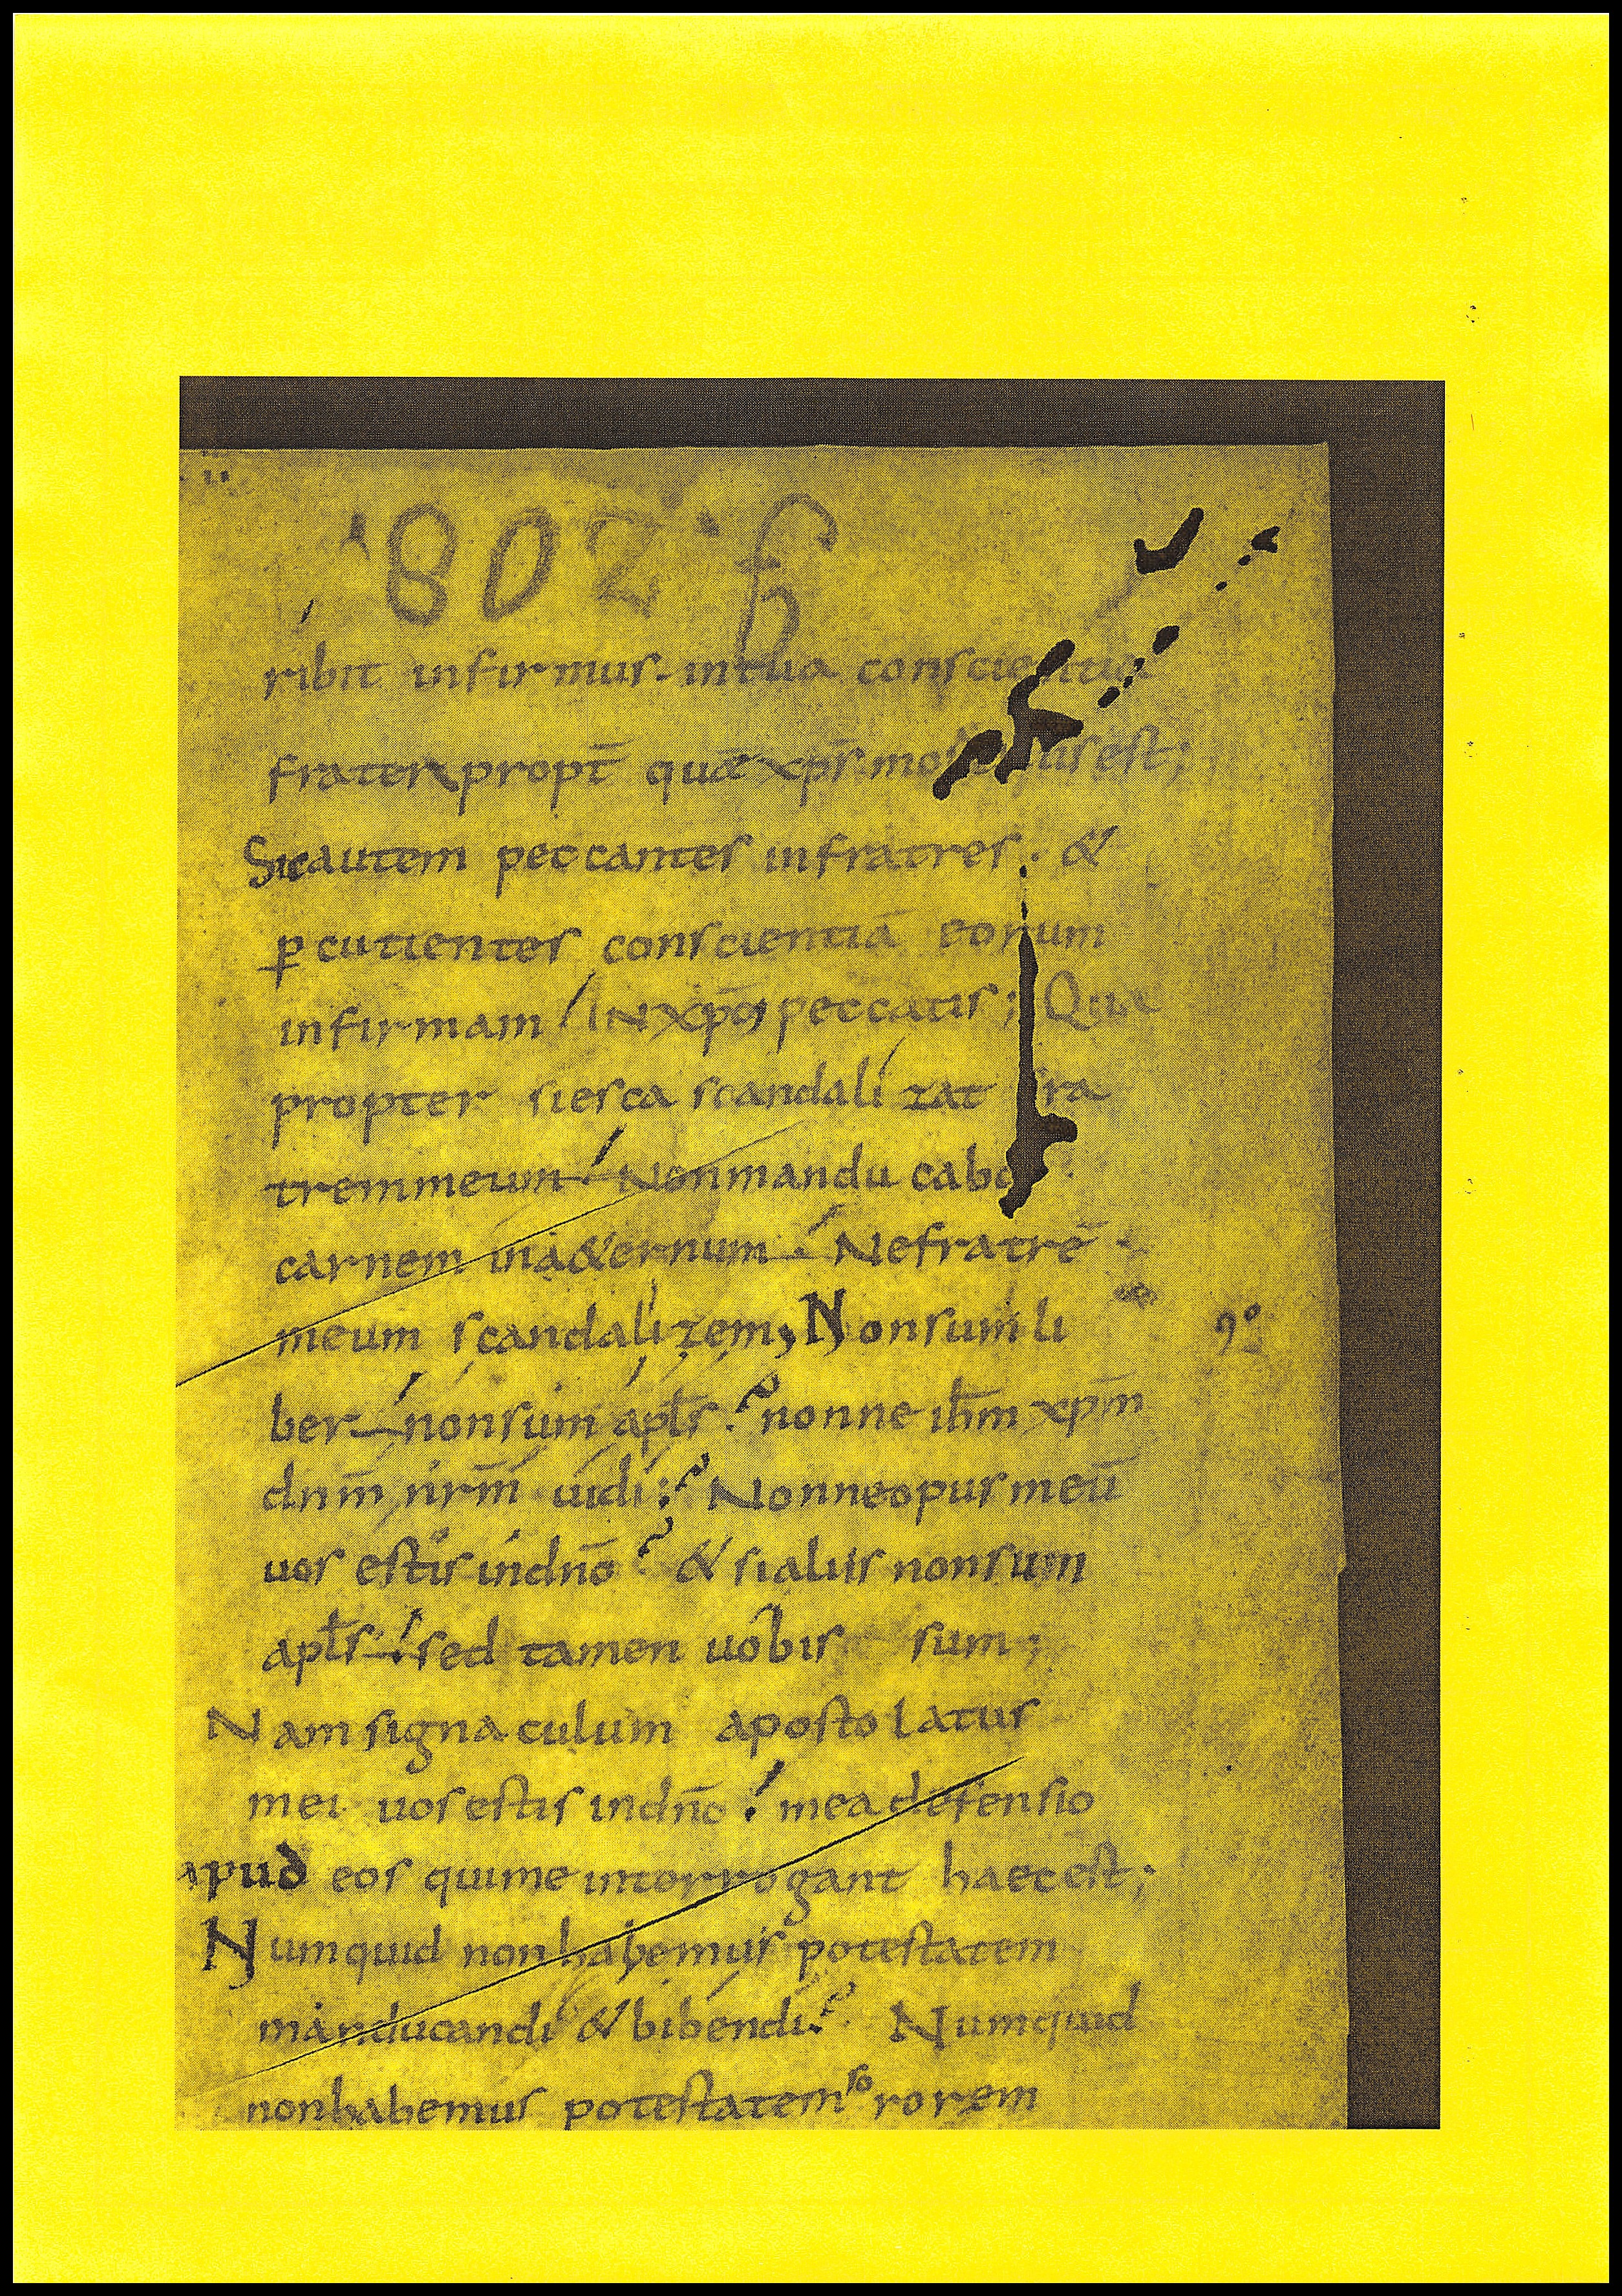 802
ribit infirmus. in tua conscientia
frater propt̄ quē xp̄s mortuus est;
Sic autem peccantes in fratres. &
ꝑcutientes conscientiā eorum
infirmam / IN xp̄o peccatis; Qua
propter si esca scandalizat fra
trem meum. Non manducabo
carnem in a&ernum. Ne fratrē
meum scandalizem, Non sum li 9º
ber. non sum apl̄s? nonne ih̄m xp̄m
dn̄m nr̄m uidi? Nonne opus meū
uos estis in dn̄o? & si aliis non sum
apl̄s. sed tamen uobis sum;
Nam signaculum apostolatus
mei uos estis in dn̄o. mea defensio
apud eos qui me interrogant haec est;
Numquid non habemus potestatem
manducandi & bibendi? Numquid
non habemus potestatem sororem